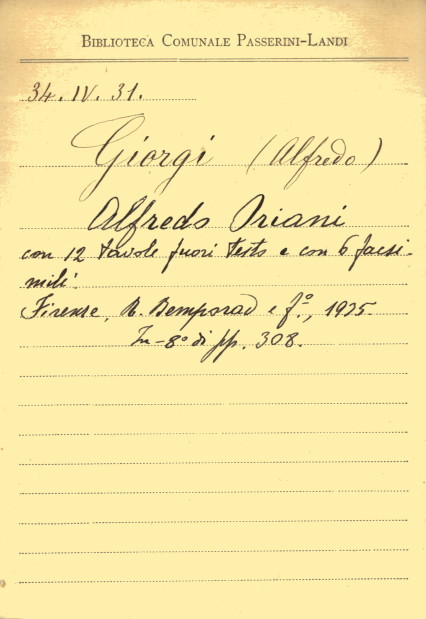 BIBLIOTECA COMUNALE PASSERINI-LANDI
34. IV. 31.
Giorgi (Alfredo)
Alfredo Oriani
con 12 tavole fuori testo e con 6 facsi-
mili.
Firenze, R. Bemporad e f.º, 1935.
In-8º di pp. 308.